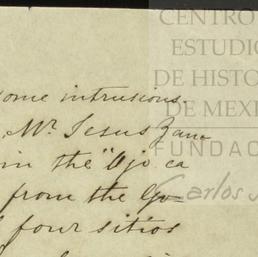 CENTRO
ESTUDIO
DE HISTO
DE MEXI
FUNDAC
Carlos S
some intrusions.
Mr. Jesus Zam
in the "Ojo ca
from the Go-
four sitios